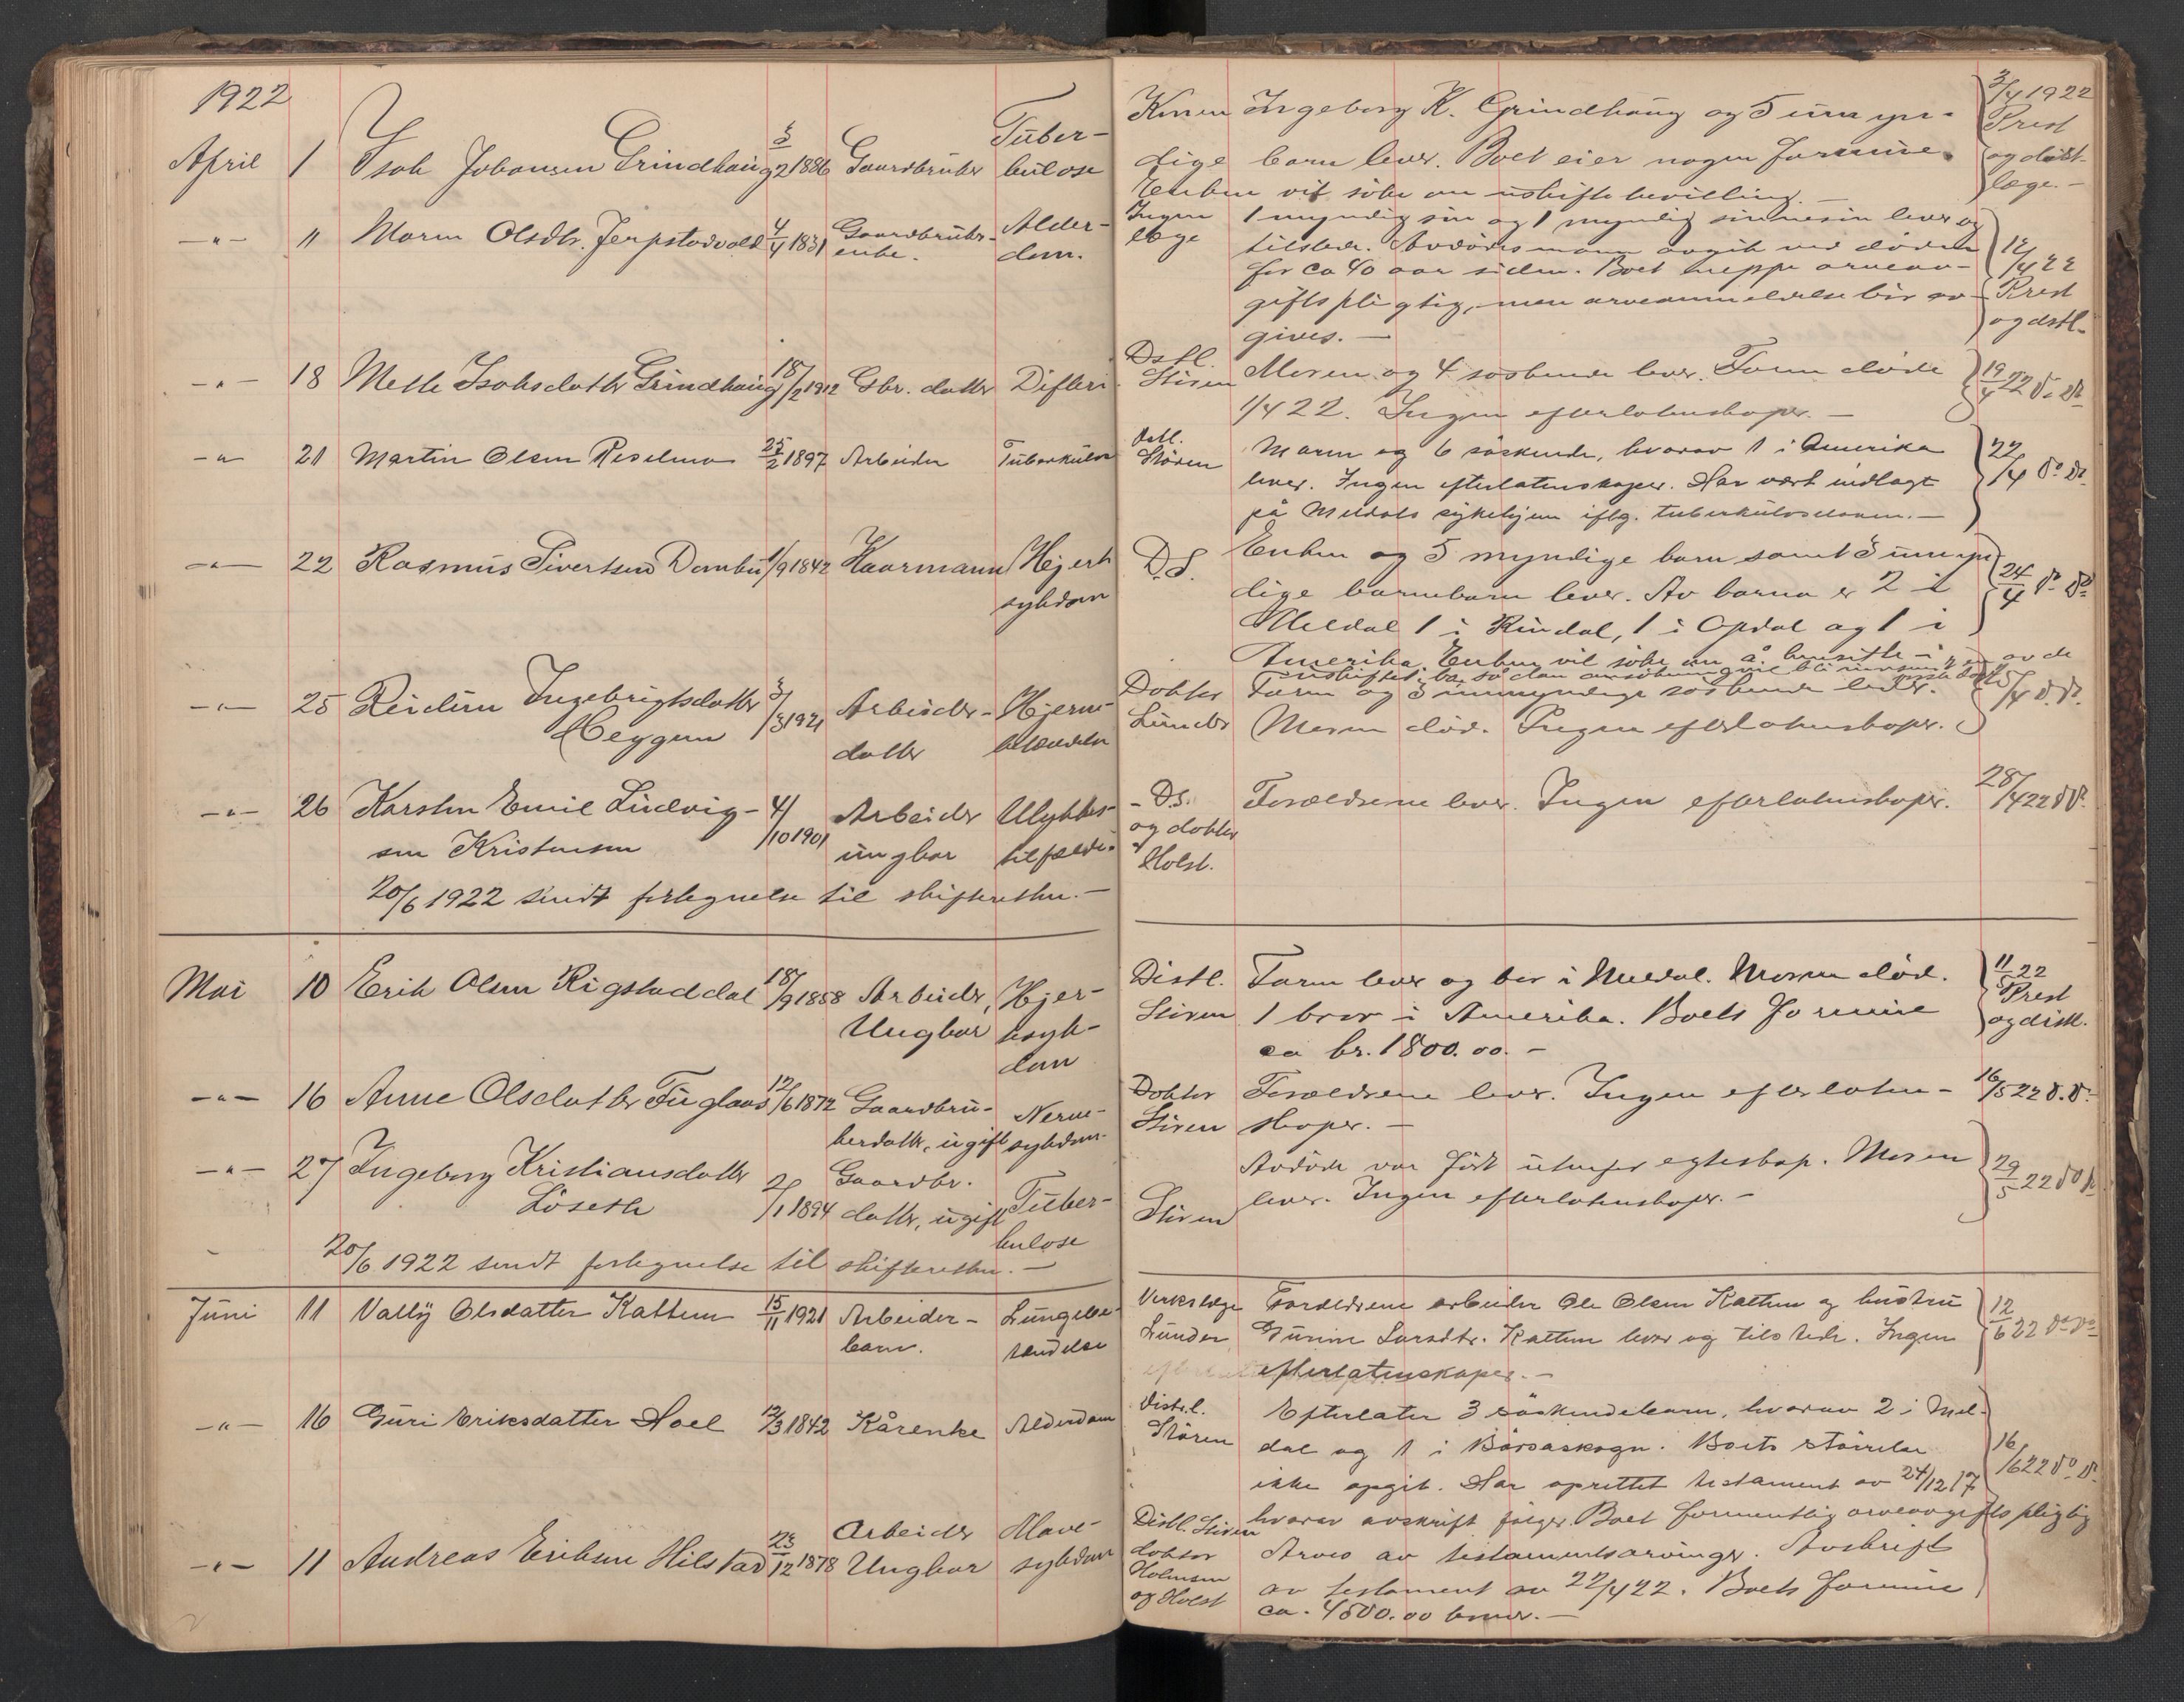 1922
April 1 Isak Johansen Grindhaug 5/2 1886 Gaardbruker Tuber-
kulose
Konen Ingeborg K. Grindhaug og 5 umyn-
dige barn lever. Boet eier nogen formue.
Enken vil söke om uskiftebevilling. —
3/4 1922
Prest
og distl-
læge. —
—"— " Maren Olsdtr. Jerpstadvold 4/4 1831 Gaardbruker-
enke.
Alder-
dom.
Ingen
læge
1 myndig sön og 1 myndig sönnesön lever og
tilstede. Avdödes mann avgik ved döden
for ca 40 aar siden. Boet neppe arveav-
giftspligtig, men arveanmeldelse bör av-
gives. —
12/4 22
Prest
og dstl.
—"— 18 Mette Isaksdatter Grindhaug 18/2 1912 Gbr. datter Difteri
Dstl.
Stören
Moren og 4 söskende lever. Faren döde
1/4 22. Ingen efterlatenskaper. —
19/4 22 do do
—"— 21 Martin Olsen Reselmo 25/2 1897 Arbeider Tuberkulose
Dstl.
Stören
Moren og 6 söskende, hvorav 1 i Amerika
lever. Ingen efterlatenskaper. Har vært indlagt
på Meldals sykehjem iflg. tuberkuloseloven. —
22/4 do do
—"— 22 Rasmus Sivertsen Dombu 1/9 1842 Kaarmann Hjerte
sykdom
D.S.
Enken og 5 myndige barn samt 3 umyn
dige barnebarn lever. Av barna er 2 i
Meldal 1 i Rindal, 1 i Opdal og 1 i
Amerika. Enken vil söke om å hensitte i
24/4 do do
—"— 25 Reidun Ingebrigtsdatter
Heggem
3/3 1921 Arbeider-
datter
Hjerne-
betændelse
Doktor
Lunder
Faren og 3 umyndige söskende lever.
Moren död. Ingen efterlatenskaper.
25/4 d. do.
—"— 26 Karsten Emil Ludvig-
sen Kristensen
4/10 1901 Arbeider
ungkar
Ulykkes-
tilfælde
- Ds.
og doktor
Holst.
Forældrene lever. Ingen efterlatenskaper.
28/4 22 d do
20/6 1922 sendt fortegnelse til skifteretten. —
Mai 10 Erik Olsen Rigstaddal 18/9 1858 Arbeider,
Ungkar
Hjer-
tesyk-
dom
Distl.
Stören
Faren lever og bor i Meldal. Moren död.
1 bror i Amerika. Boets formue
ca kr. 1800.00. -
11/5 22
Prest
og distl.
—"— 16 Anne Olsdatter Fuglaas 12/6 1872 Gaardbru-
kerdatter, ugift
Nerve-
sykdom.
Doktor
Stören
Forældrene lever. Ingen efterlaten-
skaper. —
16/5 22 d. d.
—"— 27 Ingeborg Kristiansdatter
Löseth
2/1 1894 Gaardbr.
datter, ugift
Tuber-
kulose
Stören
Avdöde var födt utenfor egteskap. Moren
lever. Ingen efterlatenskaper. -
29/5 22 do do
20/6 1922 sendt fortegnelse til skifteretten. —
Juni 11 Vally Olsdatter Kattem 15/11 1921 Arbeider-
barn.
Lungebe-
tændelse
Verkslæge
Lunder
Forældrene arbeider Ole Olsen Kattem og hustru
Gurine Larsdtr. Kattem lever og tilstede. Ingen
efterlatenskaper. —
12/6 22 do do
—"— 16 Guri Eriksdatter Hoel 12/3 1842 Kårenke Alderdom
Distr.l.
Stören
Efterlater 3 söskendebarn, hvorav 2 i Mel-
dal og 1 i Börsaskogn. Boets störrelse
ikke opgit. Har oprettet testament av 24/12 17
hvorav avskrift fölger. Boet formentlig arveavgiftspligtig
16/6 22 do do
—"— 11 Andreas Eriksen Hilstad 23/12 1878 Arbeider
Ungkar
Mave-
sykdom
Distl. Stören
doktor
Holmsen
og Holst
Arves av testamentsarvinger. Avskrift
av testament av 22/4 22. Boets formue
ca. 4500.00 kroner. —